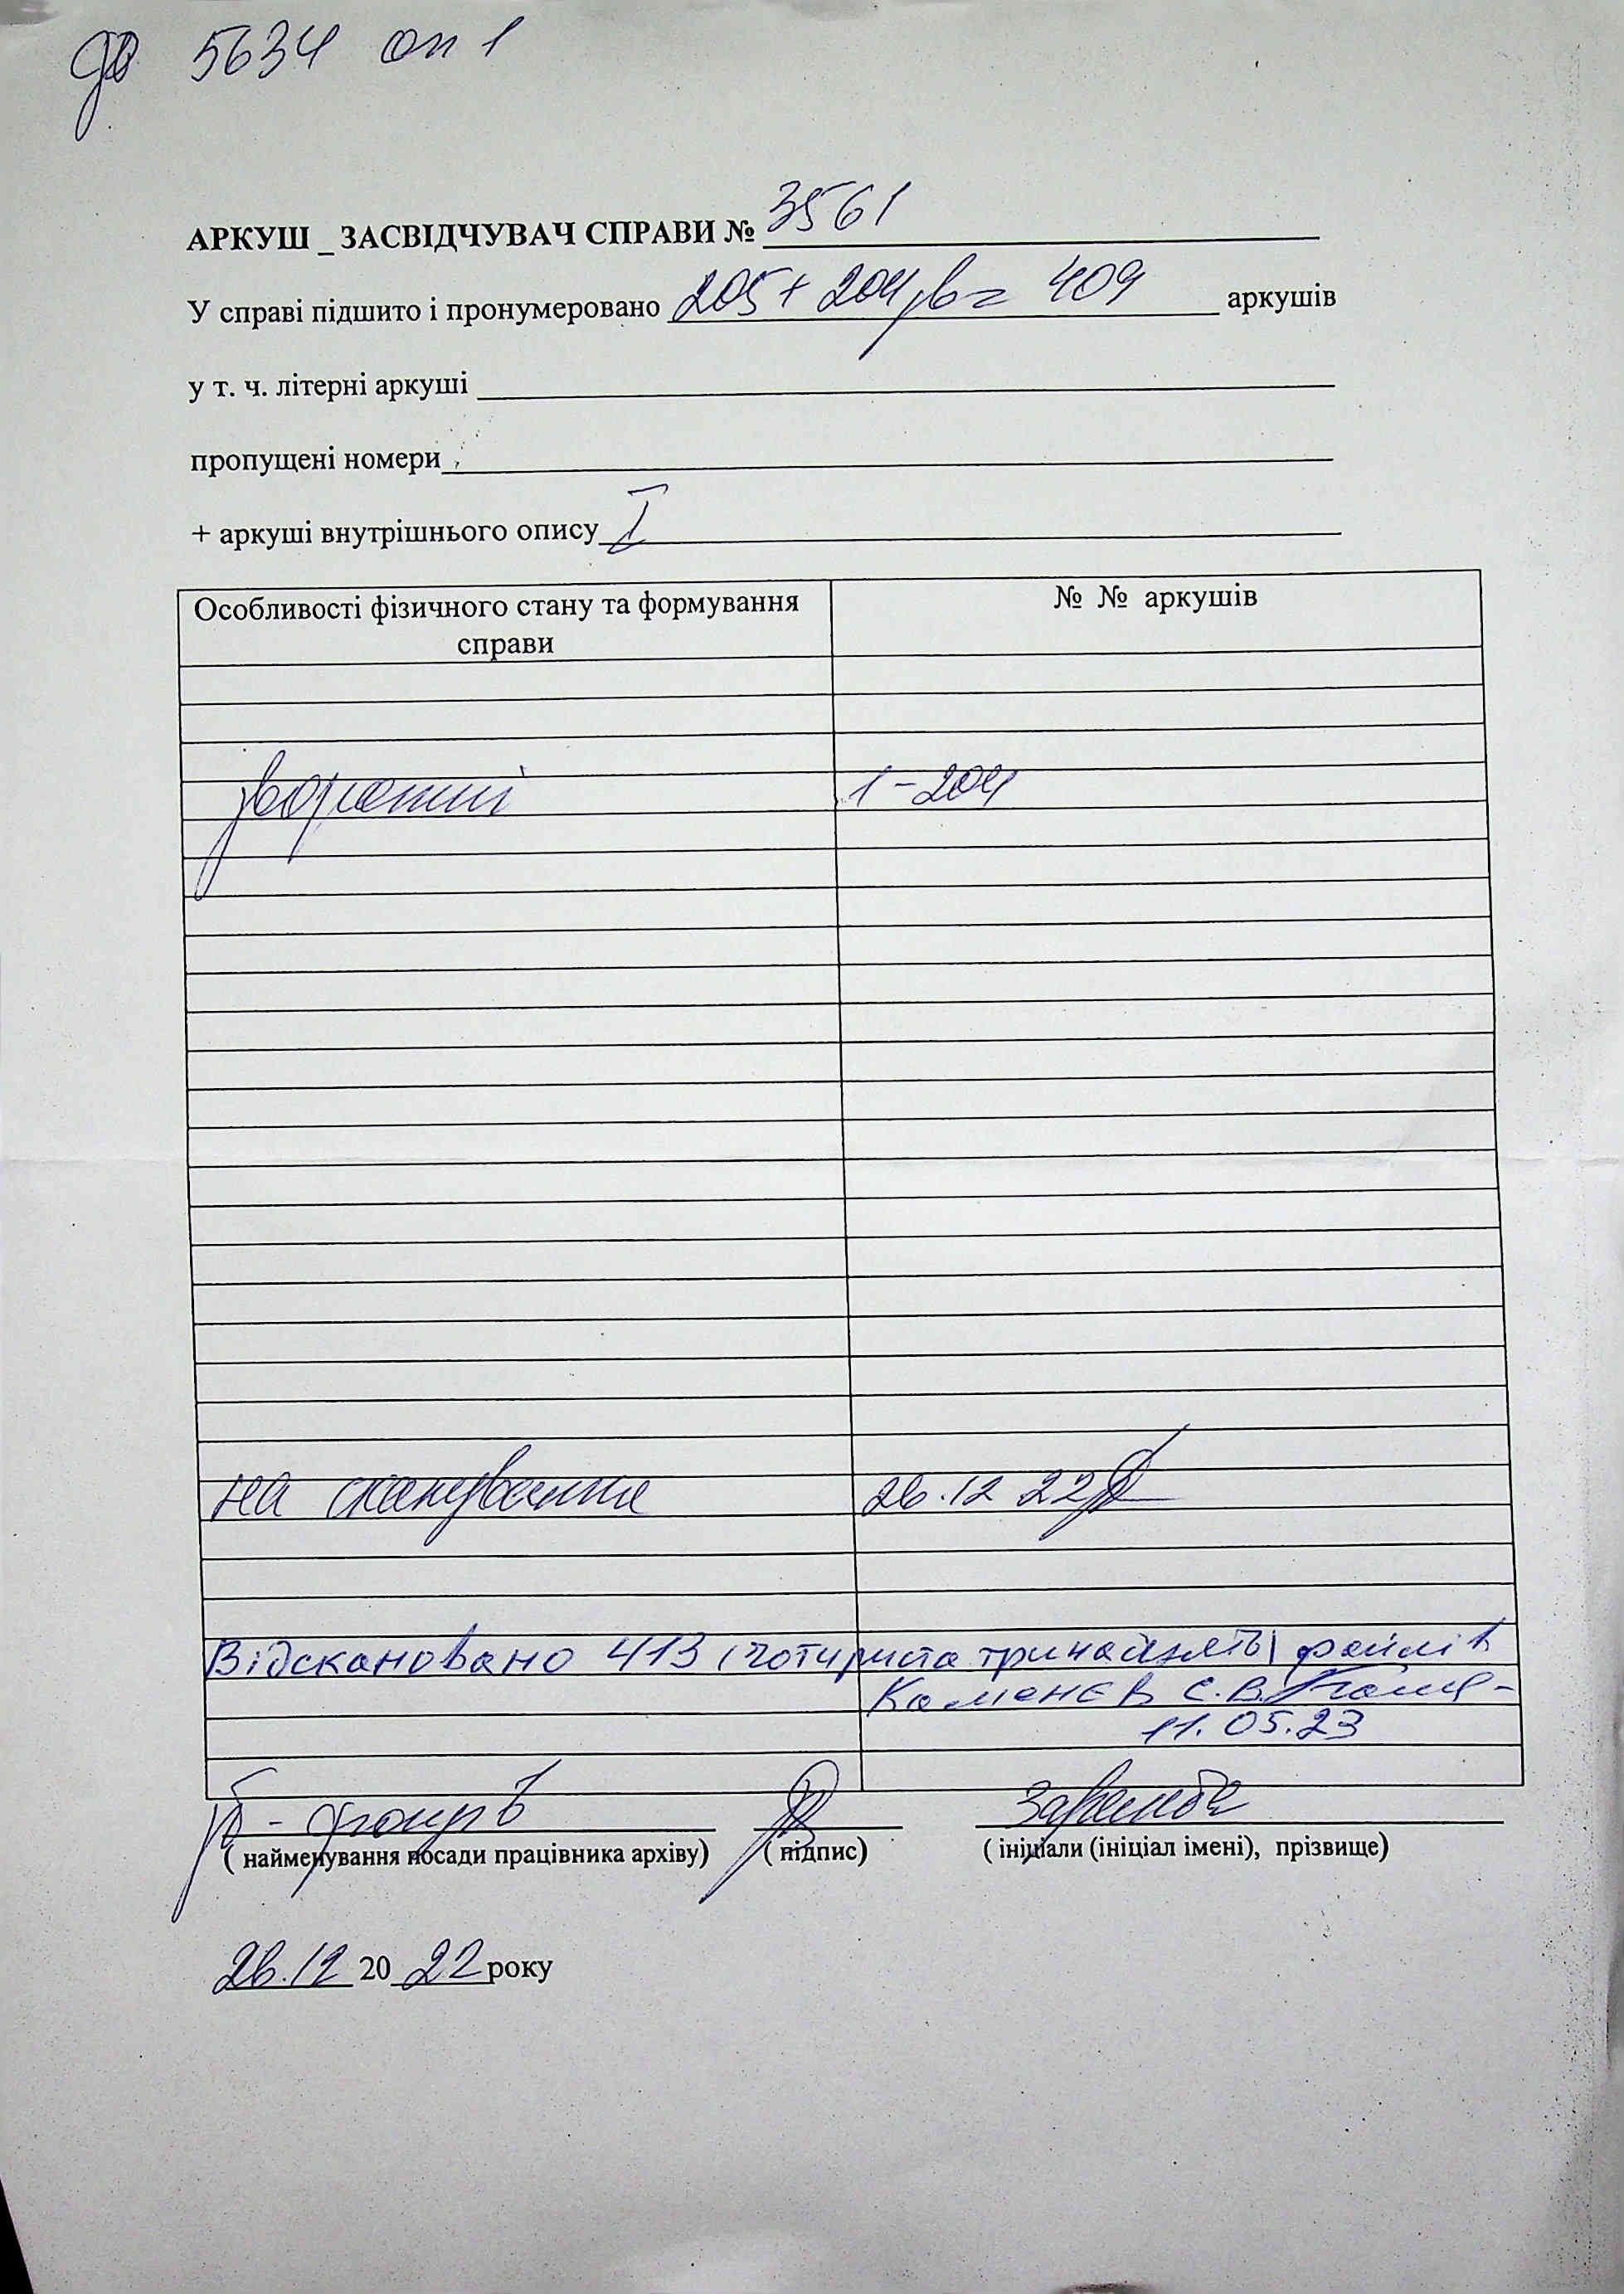 5634 оп 1
АРКУШ _ ЗАСВІДЧУВАЧ СПРАВИ № 3561
У справі підшито і пронумеровано 205 + 204 зв = 409 аркушів
у т. ч. літерні аркуші
пропущені номери
+ аркуші внутрішнього опису I
Особливості фізичного стану та формування справи № № аркушів
звороти 1-204
на сканування 26.12 22
Відскановано 413 (чотириста тринадцять) файлів
Каменєв С.В.
11.05.23
( найменування посади працівника архіву) ( підпис) ( ініціали (ініціал імені), прізвище)
26.12 20 22 року